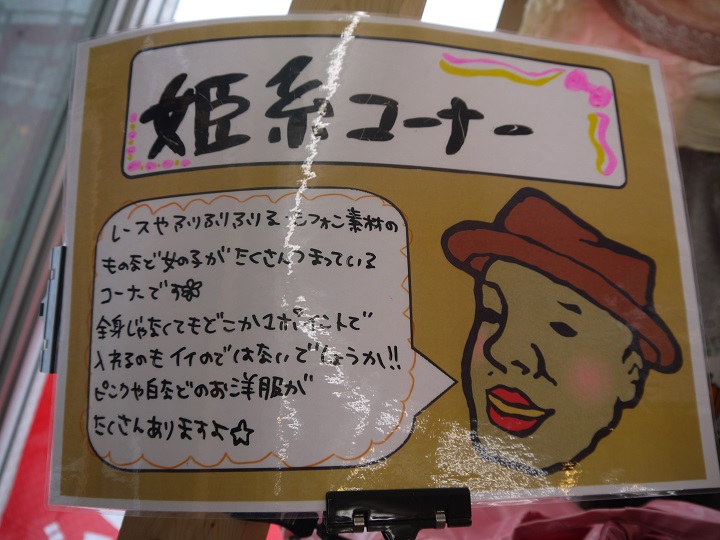 姫系コーナー
レースやふりふりふりる シフォン素材の
ものなど女の子が たくさんつまっている
コーナーです
全身じゃなくてもどこか1ポイントで
入れるのもイイのではないでしょうか!!
ピンクや白などのお洋服が
たくさんありますよ☆